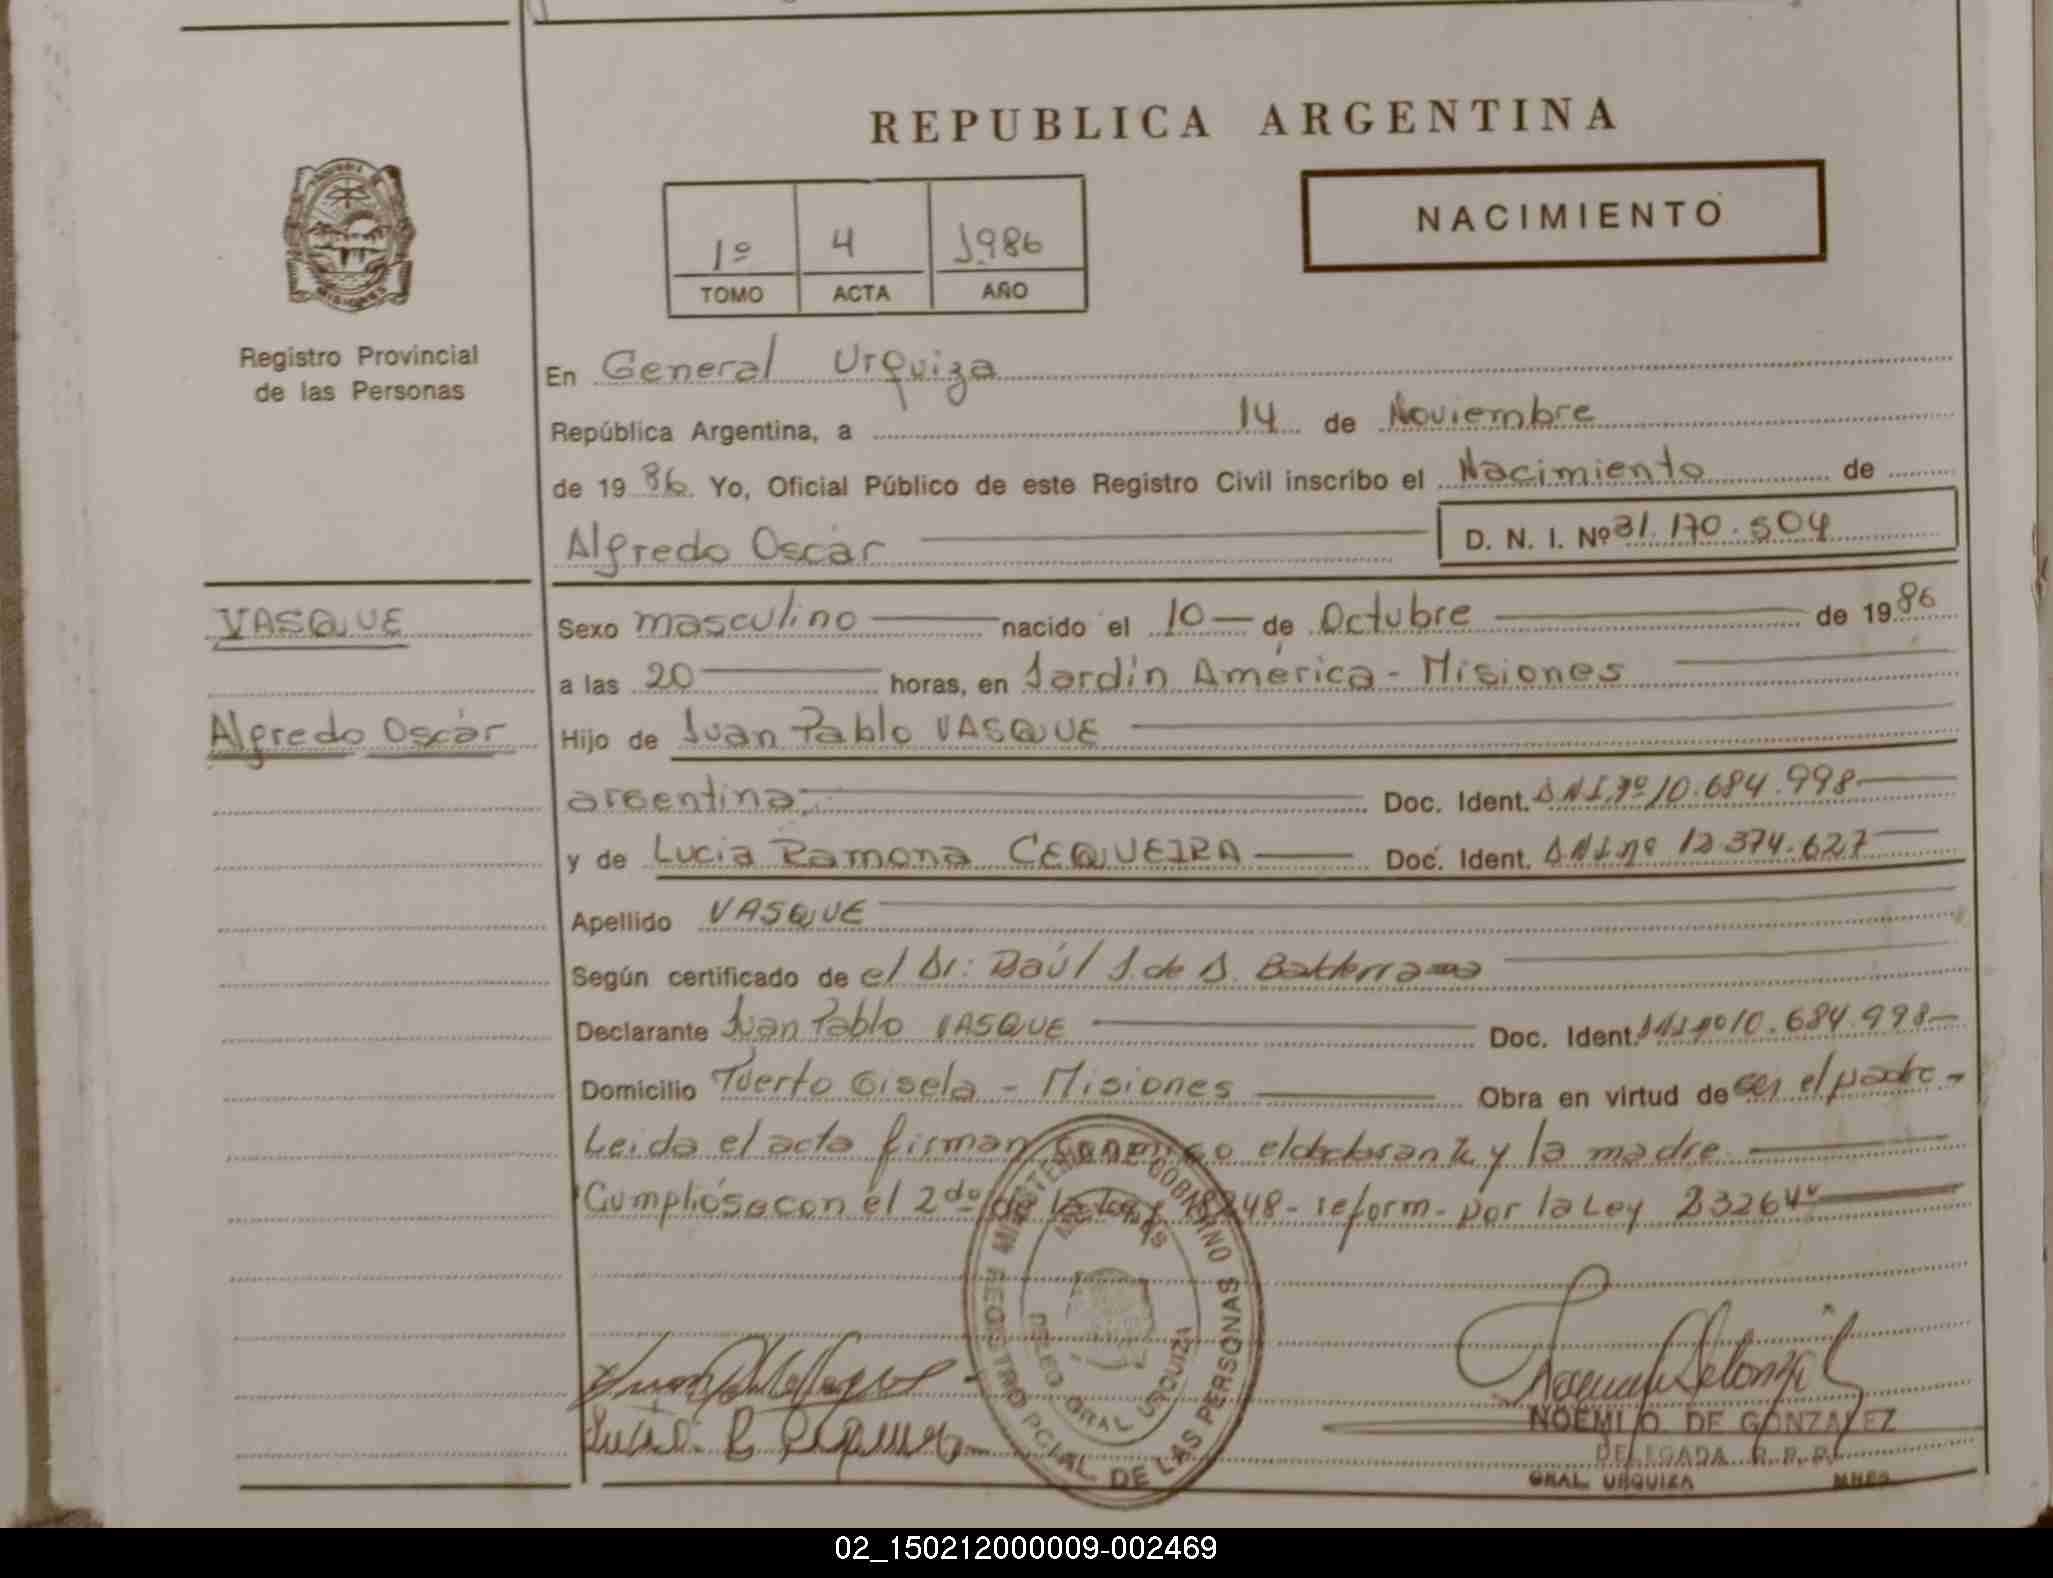 REPUBLICA ARGENTINA
NACIMIENTO
1º 4 1986
TOMO ACTA AÑO
MISIONES
Registro Provincial
de las Personas
En General Urquiza
República Argentina, a 14 de Noviembre
de 1986. Yo, Oficial Público de este Registro Civil inscribo el Nacimiento de
Alfredo Oscar D. N. I. Nº 31.170.504
VASQUE
Alfredo Oscar
Sexo masculino nacido el 10 de Octubre de 1986
a las 20 horas, en Jardín América - Misiones
Hijo de Juan Pablo VASQUE
argentina Doc. Ident. DNI.Nº 10.684.998
y de Lucia Ramona CEQUEIRA Doc. Ident. DNI.Nº 12.374.627
Apellido VASQUE
Según certificado de el Dr: Raúl J. de D. Balderrama
Declarante Juan Pablo VASQUE Doc. Ident. DNI Nº 10.684.998
Domicilio Puerto Gisela - Misiones Obra en virtud de ser el padre
Leida el acta firman conmigo el declarante y la madre
Cumpliose con el 2do de la Ley 18248 - reform. por la Ley 23264
MINISTERIO DE GOBIERNO
REGISTRO PCIAL. DE LAS PERSONAS
DELEG. GRAL URQUIZA
NOEMI O. DE GONZALEZ
DELEGADA R.P.P.
GRAL URQUIZA MNES
02_150212000009-002469